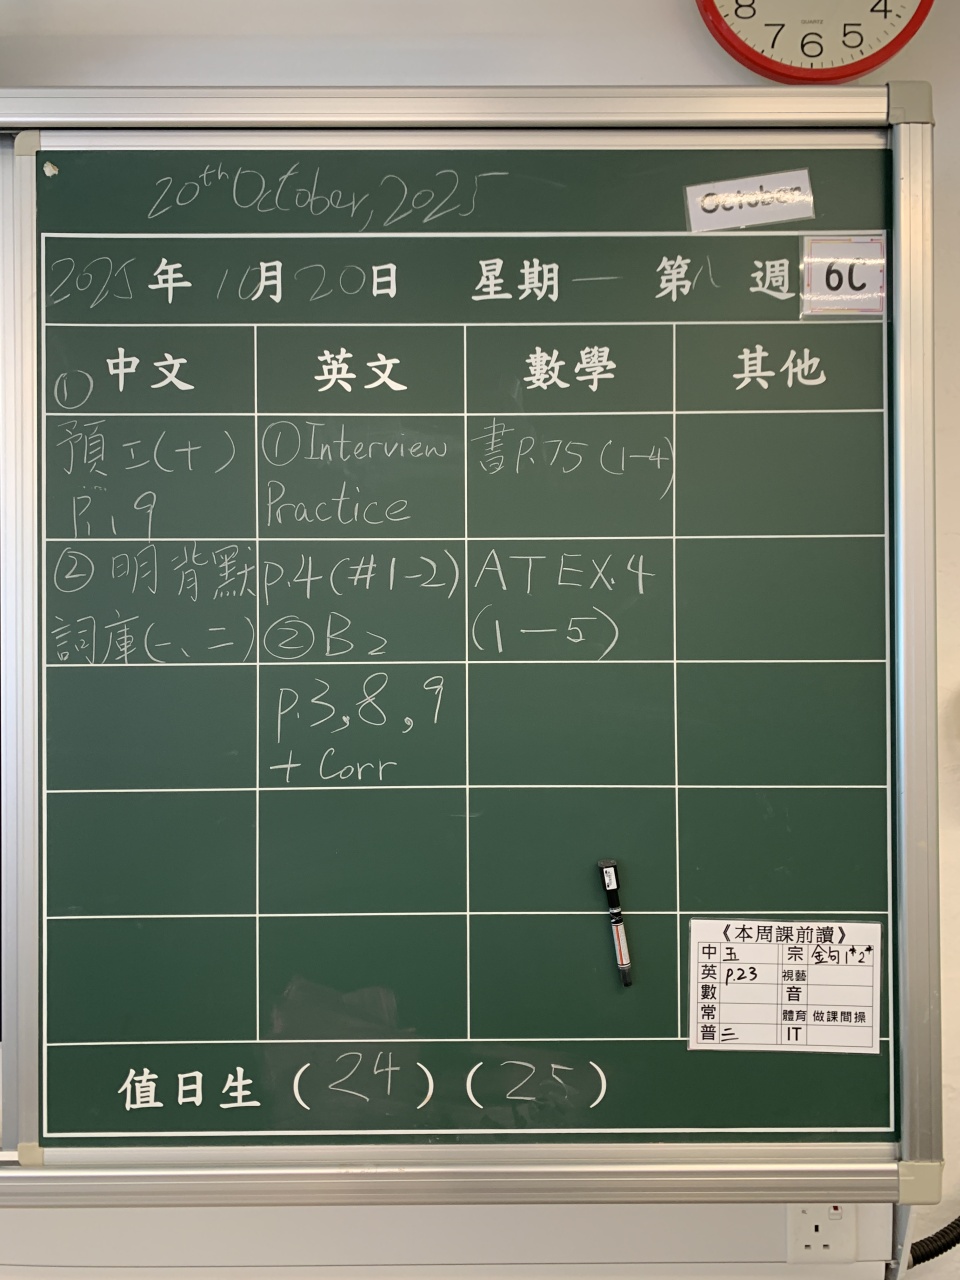 8 7 6 5 4
QUARTZ
20th October, 2025
October
2025年10月20日 星期一 第八週 6C
① 中文 英文 數學 其他
預工(十)
P.1, 9
② 明背默
詞庫(一、二)
① Interview
Practice
p.4 (#1-2)
② B2
p.3, 8, 9
+ Corr
書P.75 (1-4)
AT EX.4
(1-5)
《本周課前讀》
中 五 宗 金句1*2*
英 p.23 視藝
數 音
常 體育 做課間操
普 三 IT
值日生 (24) (25)